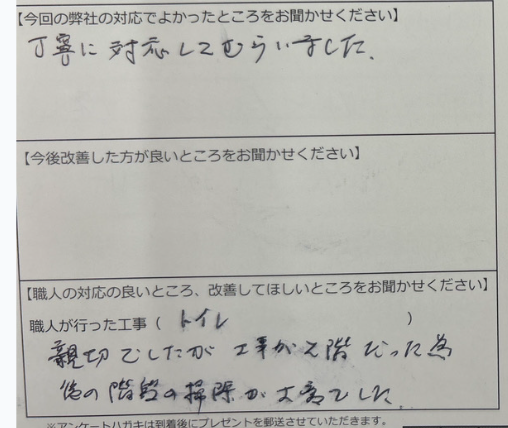 【今回の弊社の対応でよかったところをお聞かせください】
丁寧に対応してもらいました.
【今後改善した方が良いところをお聞かせください】
【職人の対応の良いところ、改善してほしいところをお聞かせください】
職人が行った工事（トイレ）
親切でしたが工事が2階だった為
後の階段の掃除が大変でした.
※アンケートハガキは到着後にプレゼントを郵送させていただきます。